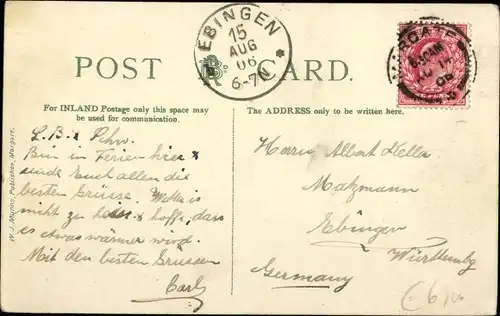 POST CARD.
EBINGEN
15
AUG
06
6-7N
MARGATE
For INLAND Postage only this space may
be used for communication.
The ADDRESS only to be written here.
W. J. Munro, Publisher, Margate.
Bin in Ferien hier &
sende Euch allen die
besten Grüsse. Wetter is
nicht zu heiss & hoffe, dass
es etwas wärmer wird.
Mit den besten Grüssen
Carl
Herrn Albert Keller
Matzmann
Ebingen
Württembg
Germany